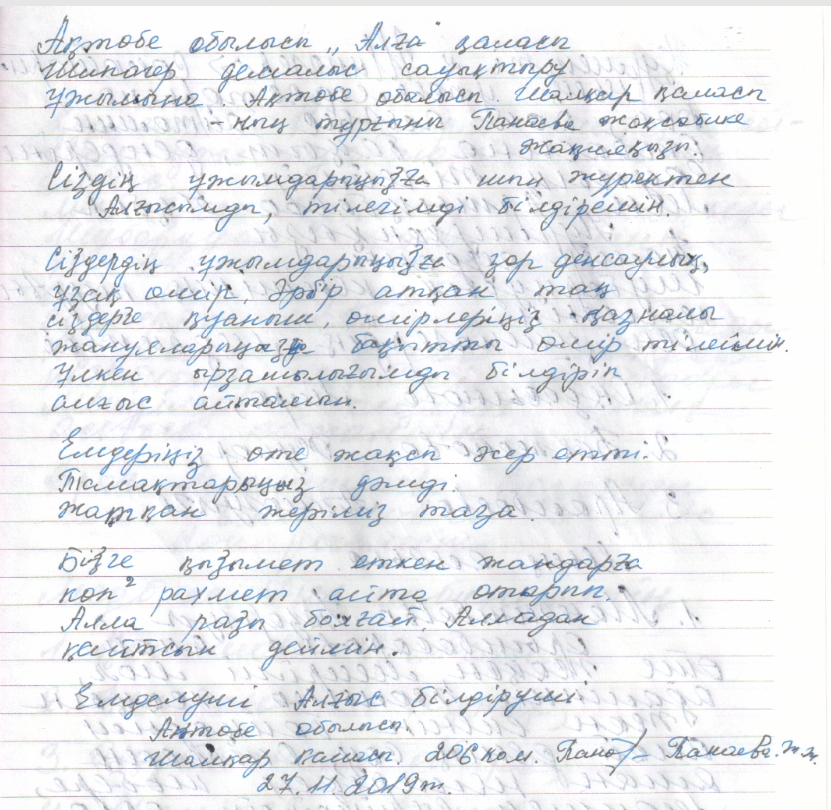 Ақтөбе обылысы „Алға" қаласы
Шипагер демалыс сауықтыру
Ұжымына Ақтөбе обылысы Шалқар қаласы
-ның тұрғыны Панаева Жақсабике
Сіздің ұжымдарыңызға шын жүректен
Алғысымды, тілегімді білдіремін.
Сіздердің ұжымдарыңызға зор денсаулық,
ұзақ өмір, Әрбір атқан таң
сіздерге қуаныш, өмірлеріңіз қазналы
жануяларыңызға бақытты өмір тілеймін.
Үлкен ырзашылығымды білдіріп
алғыс айтамын.
Емдеріңіз өте жақсы әсер етті.
Тамақтарыңыз дәмді.
Жатқан жеріміз таза.
Бізге қызымет еткен жандарға
көп² рахмет айта отырып,
Алла разы болғай, Алладан
қайтсын деймін.
Емделуші Алғыс білдіруші
Ақтөбе обылысы.
Шалқар қаласы. 206 ком. Панаева. Ж.Ж.
27.11.2019ж.